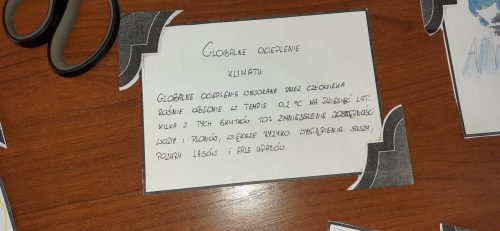 GLOBALNE OCIEPLENIE
KLIMATU
GLOBALNE OCIEPLENIE WYWOŁANE PRZEZ CZŁOWIEKA
ROŚNIE OBECNIE W TEMPIE 0,2 °C NA DZIESIĘĆ LAT.
KILKA Z TYCH SKUTKÓW TO: ZMNIEJSZENIE DOSTĘPNOŚCI
WODY I PLONÓW, WIĘKSZE RYZYKO WYSTĄPIENIA SUSZY,
POŻARY LASÓW I FALE UPAŁÓW.